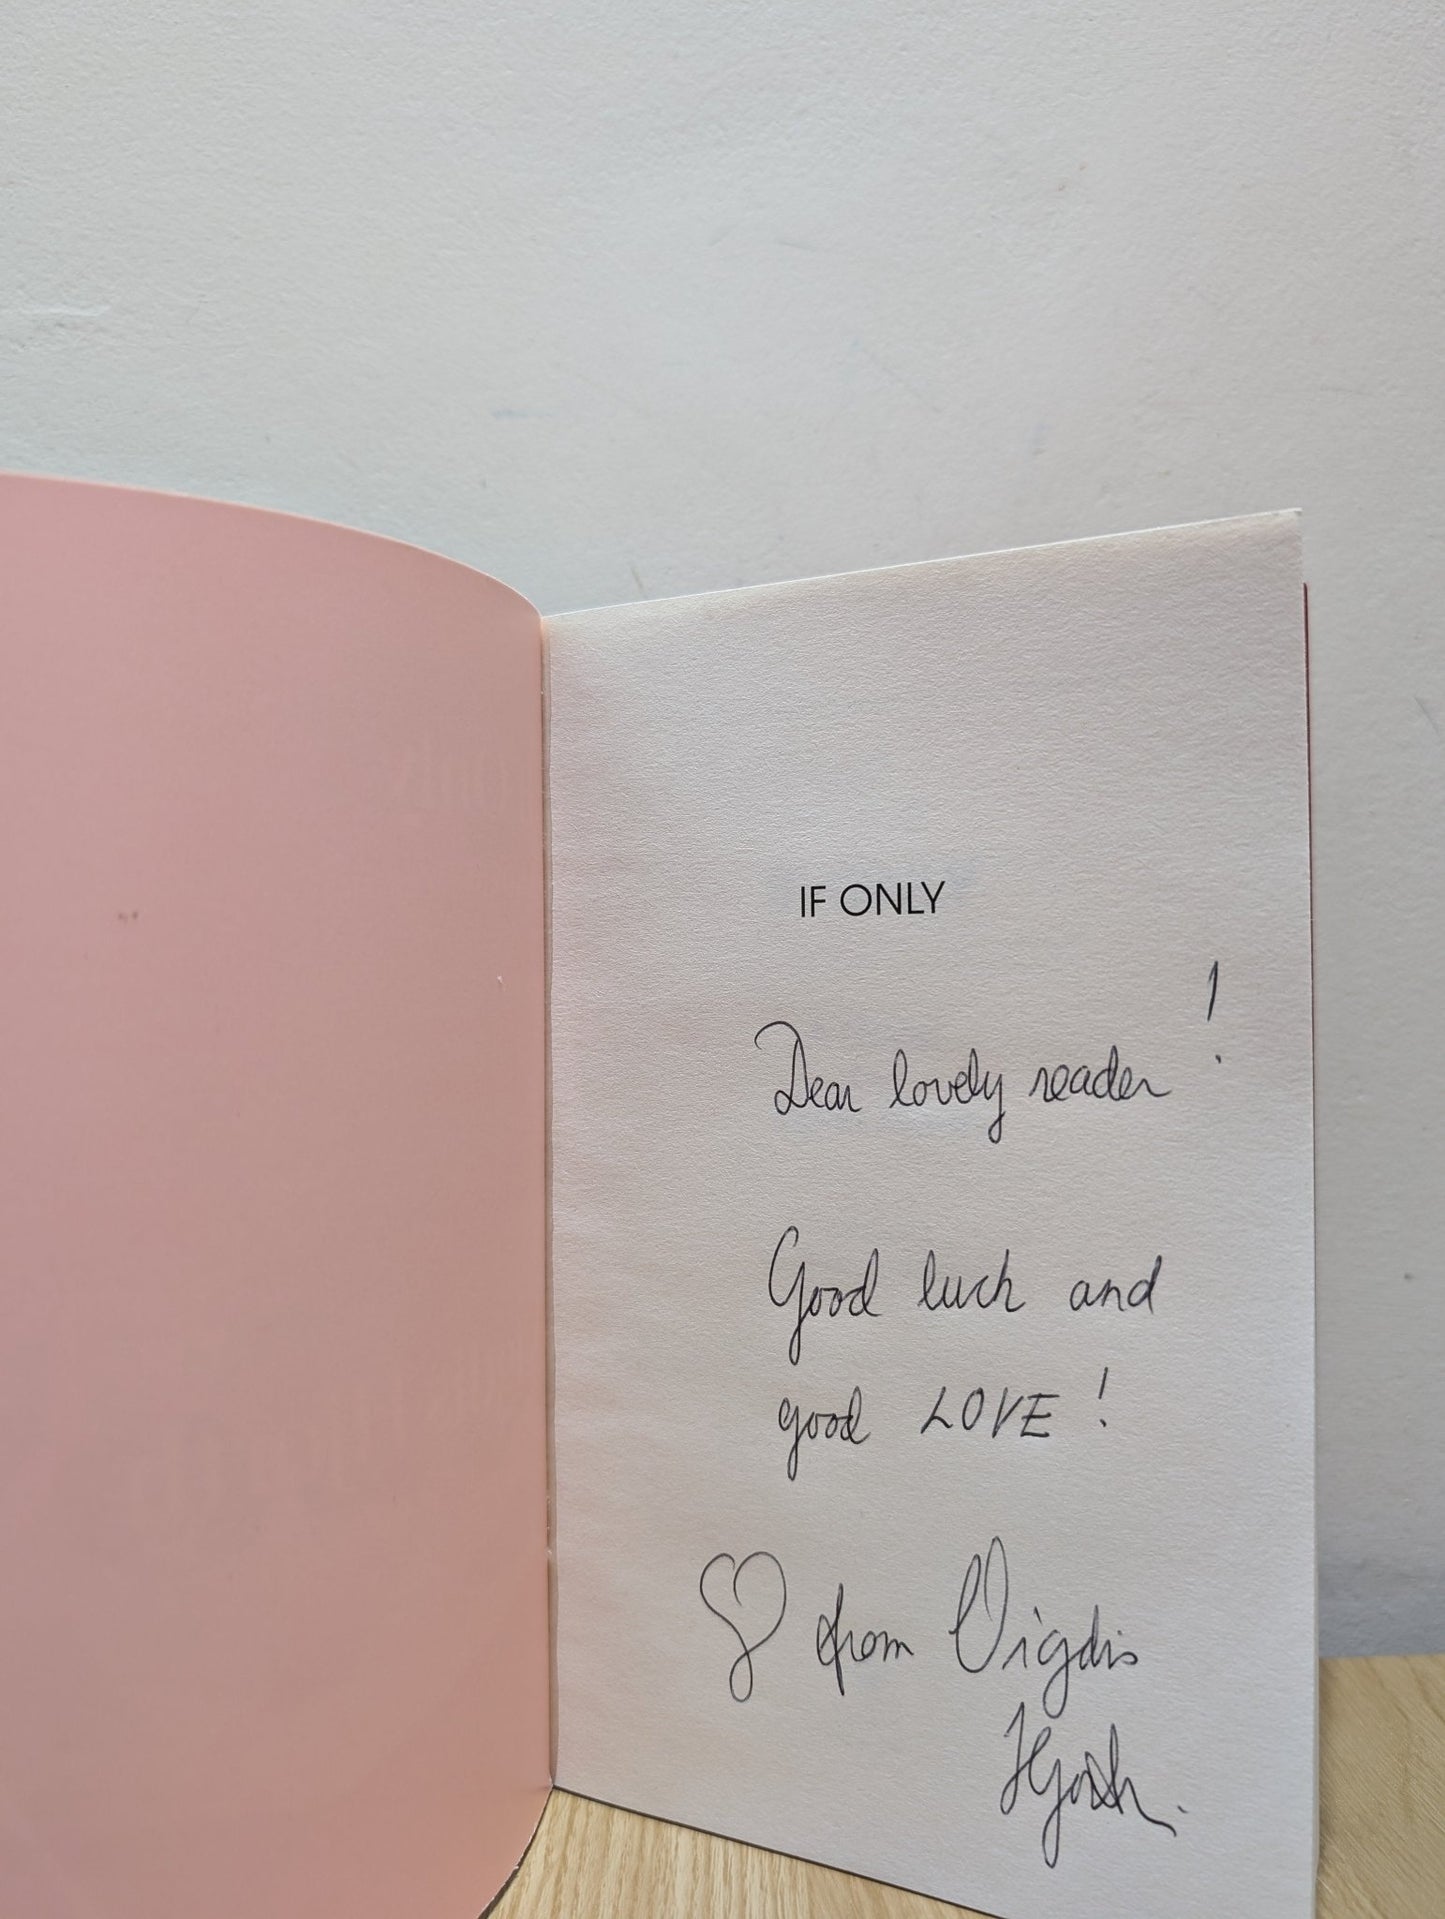 IF ONLY
Dear lovely reader!
Good luck and
good LOVE!
♡ from Vigdis
Hjorth.